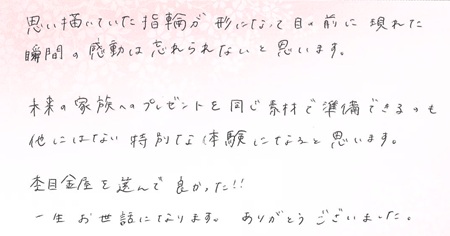 思い描いていた指輪が形になって目の前に現れた
瞬間の感動は忘れられないと思います。
未来の家族へのプレゼントを同じ素材で準備できるのも
他にはない特別な体験になると思います。
杢目金屋を選んで良かった!!
一生お世話になります。ありがとうございました。